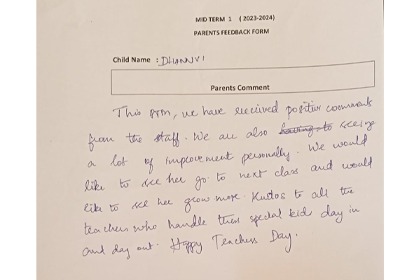 MID TERM 1 (2023-2024)
PARENTS FEEDBACK FORM
Child Name : DHANNVI
Parents Comment
This PTM, we have received positive comments
from the staff. We are also having to seeing
a lot of improvement personally. We would
like to see her go to next class and would
like to see her grow more. Kudos to all the
teachers who handle these special kids day in
and day out. Happy Teachers Day.